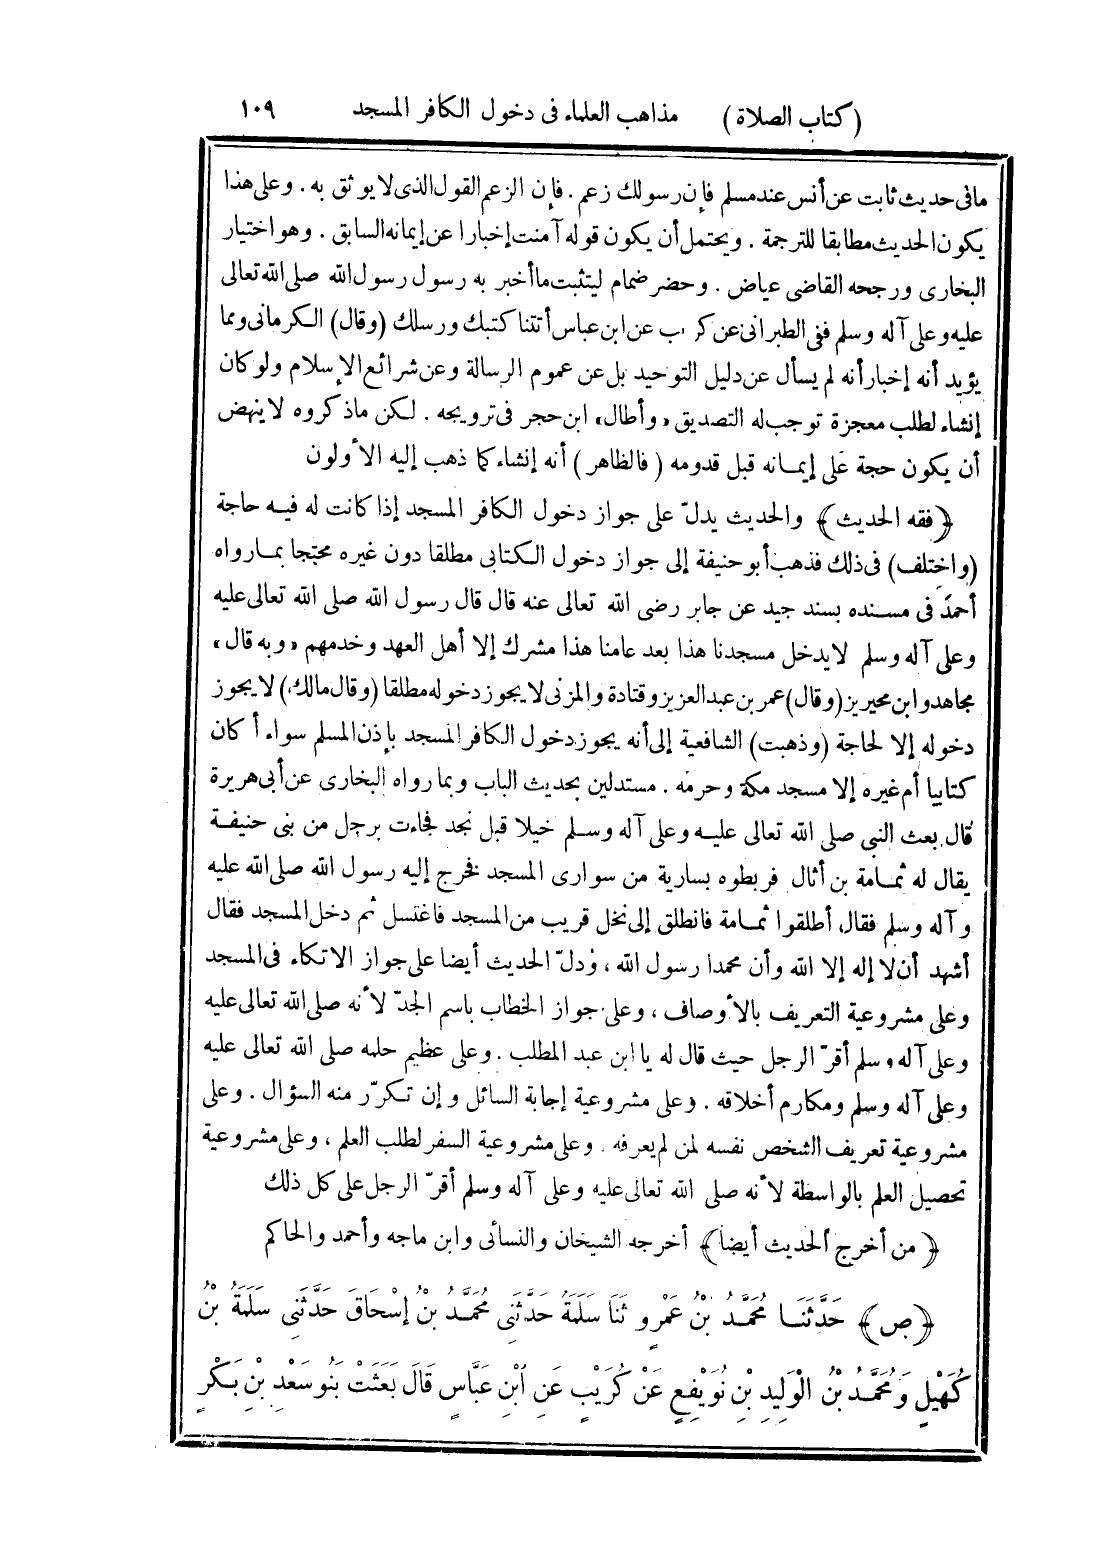 (كتاب الصلاة) مذاهب العلماء فى دخول الكافر المسجد ١٠٩
مافى حديث ثابت عن أنس عند مسلم فإن رسولك زعم . فإن الزعم القول الذى لا يوثق به . وعلى هذا
يكون الحديث مطابقا للترجمة . ويحتمل أن يكون قوله آمنت إخبارا عن إيمانه السابق . وهو اختيار
البخارى ورجحه القاضى عياض . وحضر ضمام ليتثبت ما أخبر به رسول رسول الله صلى الله تعالى
عليه وعلى آله وسلم ففى الطبرانى عن كريب عن ابن عباس أتتنا كتبك ورسلك (وقال) الكرمانى ومما
يؤيد أنه إخبار أنه لم يسأل عن دليل التوحيد بل عن عموم الرسالة وعن شرائع الإسلام ولو كان
إنشاء لطلب معجزة توجب له التصديق «وأطال» ابن حجر فى ترويجه . لكن ماذكروه لا ينهض
أن يكون حجة على إيمانه قبل قدومه (فالظاهر) أنه إنشاء كما ذهب إليه الأولون
﴿فقه الحديث﴾ والحديث يدلّ على جواز دخول الكافر المسجد إذا كانت له فيه حاجة
(واختلف) فى ذلك فذهب أبو حنيفة إلى جواز دخول الكتابى مطلقا دون غيره محتجا بما رواه
أحمد فى مسنده بسند جيد عن جابر رضى الله تعالى عنه قال قال رسول الله صلى الله تعالى عليه
وعلى آله وسلم لايدخل مسجدنا هذا بعد عامنا هذا مشرك إلا أهل العهد وخدمهم «وبه قال»
مجاهد وابن محيريز (وقال) عمر بن عبد العزيز وقتادة والمزنى لايجوز دخوله مطلقا (وقال مالك) لايجوز
دخوله إلا لحاجة (وذهبت) الشافعية إلى أنه يجوز دخول الكافر المسجد بإذن المسلم سواء أكان
كتابيا أم غيره إلا مسجد مكة وحرمه . مستدلين بحديث الباب وبما رواه البخارى عن أبى هريرة
قال بعث النبي صلى الله تعالى عليه وعلى آله وسلم خيلا قبل نجد فجاءت برجل من بنى حنيفة
يقال له ثمامة بن أثال فربطوه بسارية من سوارى المسجد فخرج إليه رسول الله صلى الله عليه
وآله وسلم فقال أطلقوا ثمامة فانطلق إلى نخل قريب من المسجد فاغتسل ثم دخل المسجد فقال
أشهد أن لا إله إلا الله وأن محمدا رسول الله ، ودلّ الحديث أيضا على جواز الاتكاء فى المسجد
وعلى مشروعية التعريف بالأوصاف ، وعلى جواز الخطاب باسم الجدّ لأنه صلى الله تعالى عليه
وعلى آله وسلم أقرّ الرجل حيث قال له يا ابن عبد المطلب . وعلى عظيم حلمه صلى الله تعالى عليه
وعلى آله وسلم ومكارم أخلاقه . وعلى مشروعية إجابة السائل وإن تكرّر منه السؤال . وعلى
مشروعية تعريف الشخص نفسه لمن لم يعرفه . وعلى مشروعية السفر لطلب العلم ، وعلى مشروعية
تحصيل العلم بالواسطة لأنه صلى الله تعالى عليه وعلى آله وسلم أقرّ الرجل على كل ذلك
﴿من أخرج الحديث أيضا﴾ أخرجه الشيخان والنسائى وابن ماجه وأحمد والحاكم
﴿ص﴾ حَدَّثَنَا مُحَمَّدُ بْنُ عَمْرٍو ثَنَا سَلَمَةُ حَدَّثَنِى مُحَمَّدُ بْنُ إِسْحَاقَ حَدَّثَنِى سَلَمَةُ بْنُ
كُهَيْلٍ وَمُحَمَّدُ بْنُ الْوَلِيدِ بْنِ نُوَيْفِعٍ عَنْ كُرَيْبٍ عَنِ ابْنِ عَبَّاسٍ قَالَ بَعَثَتْ بَنُو سَعْدِ بْنِ بَكْرٍ